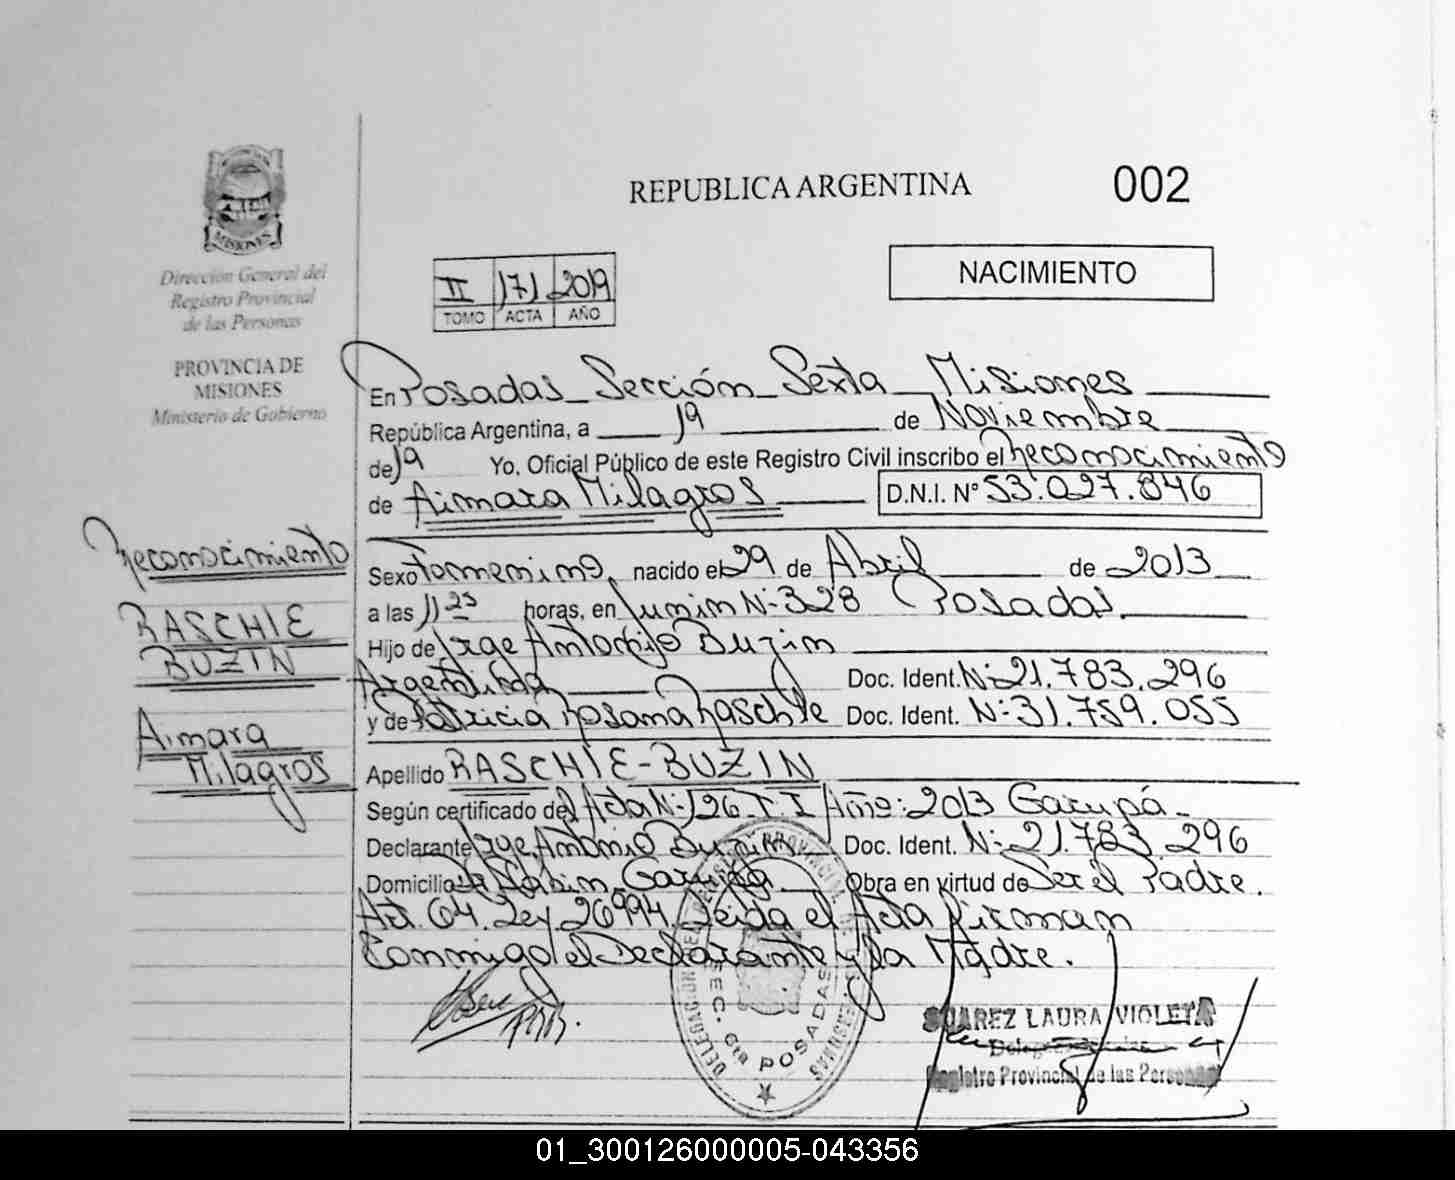 REPUBLICA ARGENTINA
002
MISIONES
Dirección General del
Registro Provincial
de las Personas
PROVINCIA DE
MISIONES
Ministerio de Gobierno
II 171 2019
TOMO ACTA AÑO
NACIMIENTO
En Posadas Sección Sexta Misiones
República Argentina, a 19 de Noviembre
de 19 Yo. Oficial Público de este Registro Civil inscribo el Reconocimiento
de Aimara Milagros D.N.I. N° 53.027.846
Reconocimiento
RASCHIE
BUZIN
Aimara
Milagros
Sexo Femenino, nacido el 29 de Abril de 2013
a las 11 25 horas, en Junin N- 328 Posadas.
Hijo de Jorge Antonio Buzin
Argentina Doc. Ident. N- 21.783.296
y de Patricia Rosana Raschie Doc. Ident. N- 31.759.055
Apellido RASCHIE-BUZIN
Según certificado del Acta N- 126 T. I Año: 2013 Garupá-
Declarante Jorge Antonio Buzin Doc. Ident. N- 21.783.296
Domicilio Garupá Obra en virtud de Ser el Padre.
Art. 64. Ley 26994. Leida el Acta Firman
Conmigo el Declarante y la Madre.
SEC. 6ta POSADAS
SUAREZ LAURA VIOLETA
Registro Provincial de las Personas
01_300126000005-043356